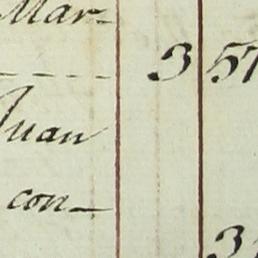 Mar-
3 57
Juan
con-
3